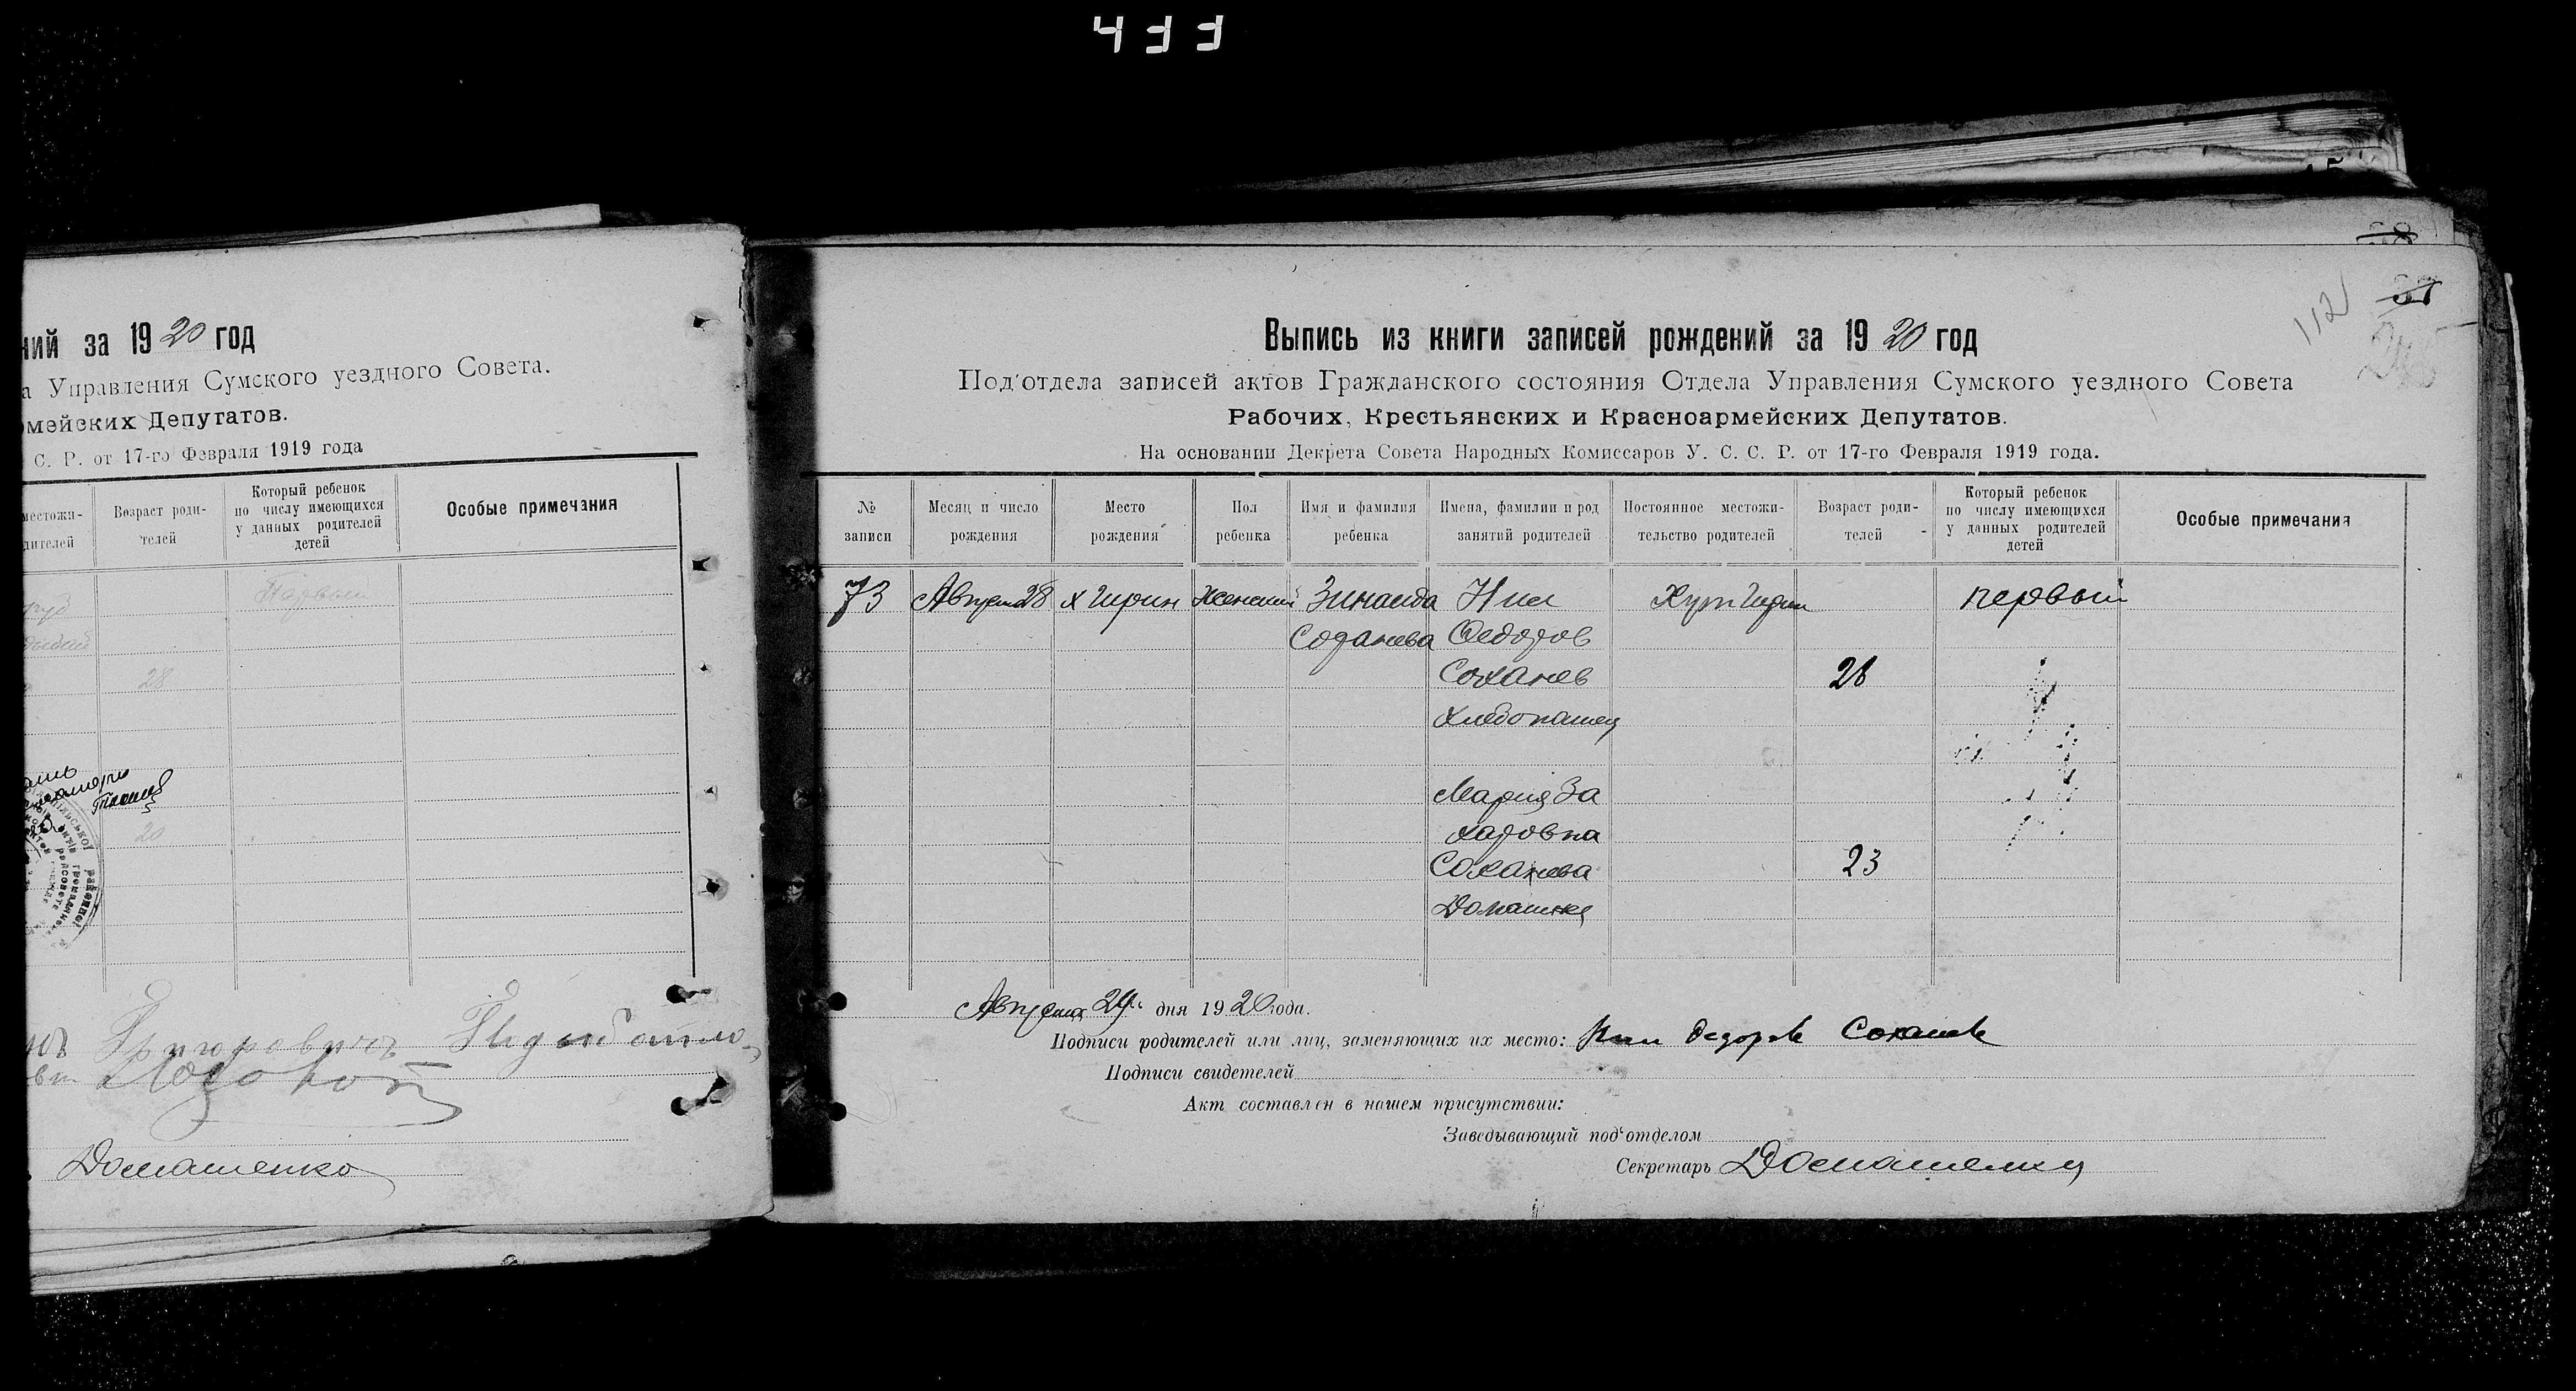 433
ний за 1920 год
а Управления Сумского уездного Совета.
мейских Депутатов.
С. Р. от 17-го Февраля 1919 года
местожи-
дителей
Возраст роди-
телей
Который ребенок
по числу имеющихся
у данных родителей
детей
Особые примечания
Первый
28
20
Домашенко
112
37
Выпись из книги записей рождений за 1920 год
Под'отдела записей актов Гражданского состояния Отдела Управления Сумского уездного Совета
Рабочих, Крестьянских и Красноармейских Депутатов.
На основании Декрета Совета Народных Комиссаров У. С. С. Р. от 17-го Февраля 1919 года.
№
записи
Месяц и число
рождения
Место
рождения
Пол
ребенка
Имя и фамилия
ребенка
Имена, фамилии и род
занятий родителей
Постоянное местожи-
тельство родителей
Возраст роди-
телей
Который ребенок
по числу имеющихся
у данных родителей
детей
Особые примечания
73 Августа 28 х Женский Зинаида Хут первый
Федоров
Соханев 26
Хлебопашец
Мария За
харовна
Соханева 23
Домашняя
Августа 29 дня 1920 года.
Подписи родителей или лиц, заменяющих их место: Федоров Соханев
Подписи свидетелей
Акт составлен в нашем присутствии:
Заведывающий под'отделом
Секретарь Домашенко